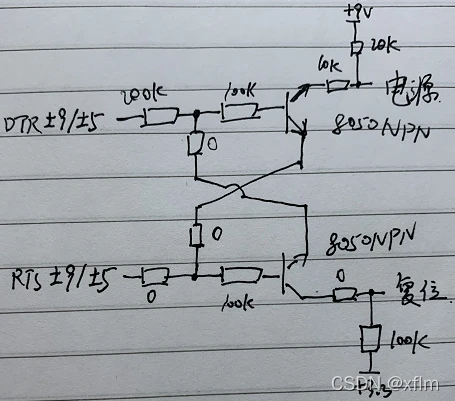 +9V
20K
10K
电源
200K
100K
DTR±9/±5
8050NPN
0
0
8050NPN
RTS±9/±5
0
100K
0
复位
100K
+3.3
CSDN @xflm